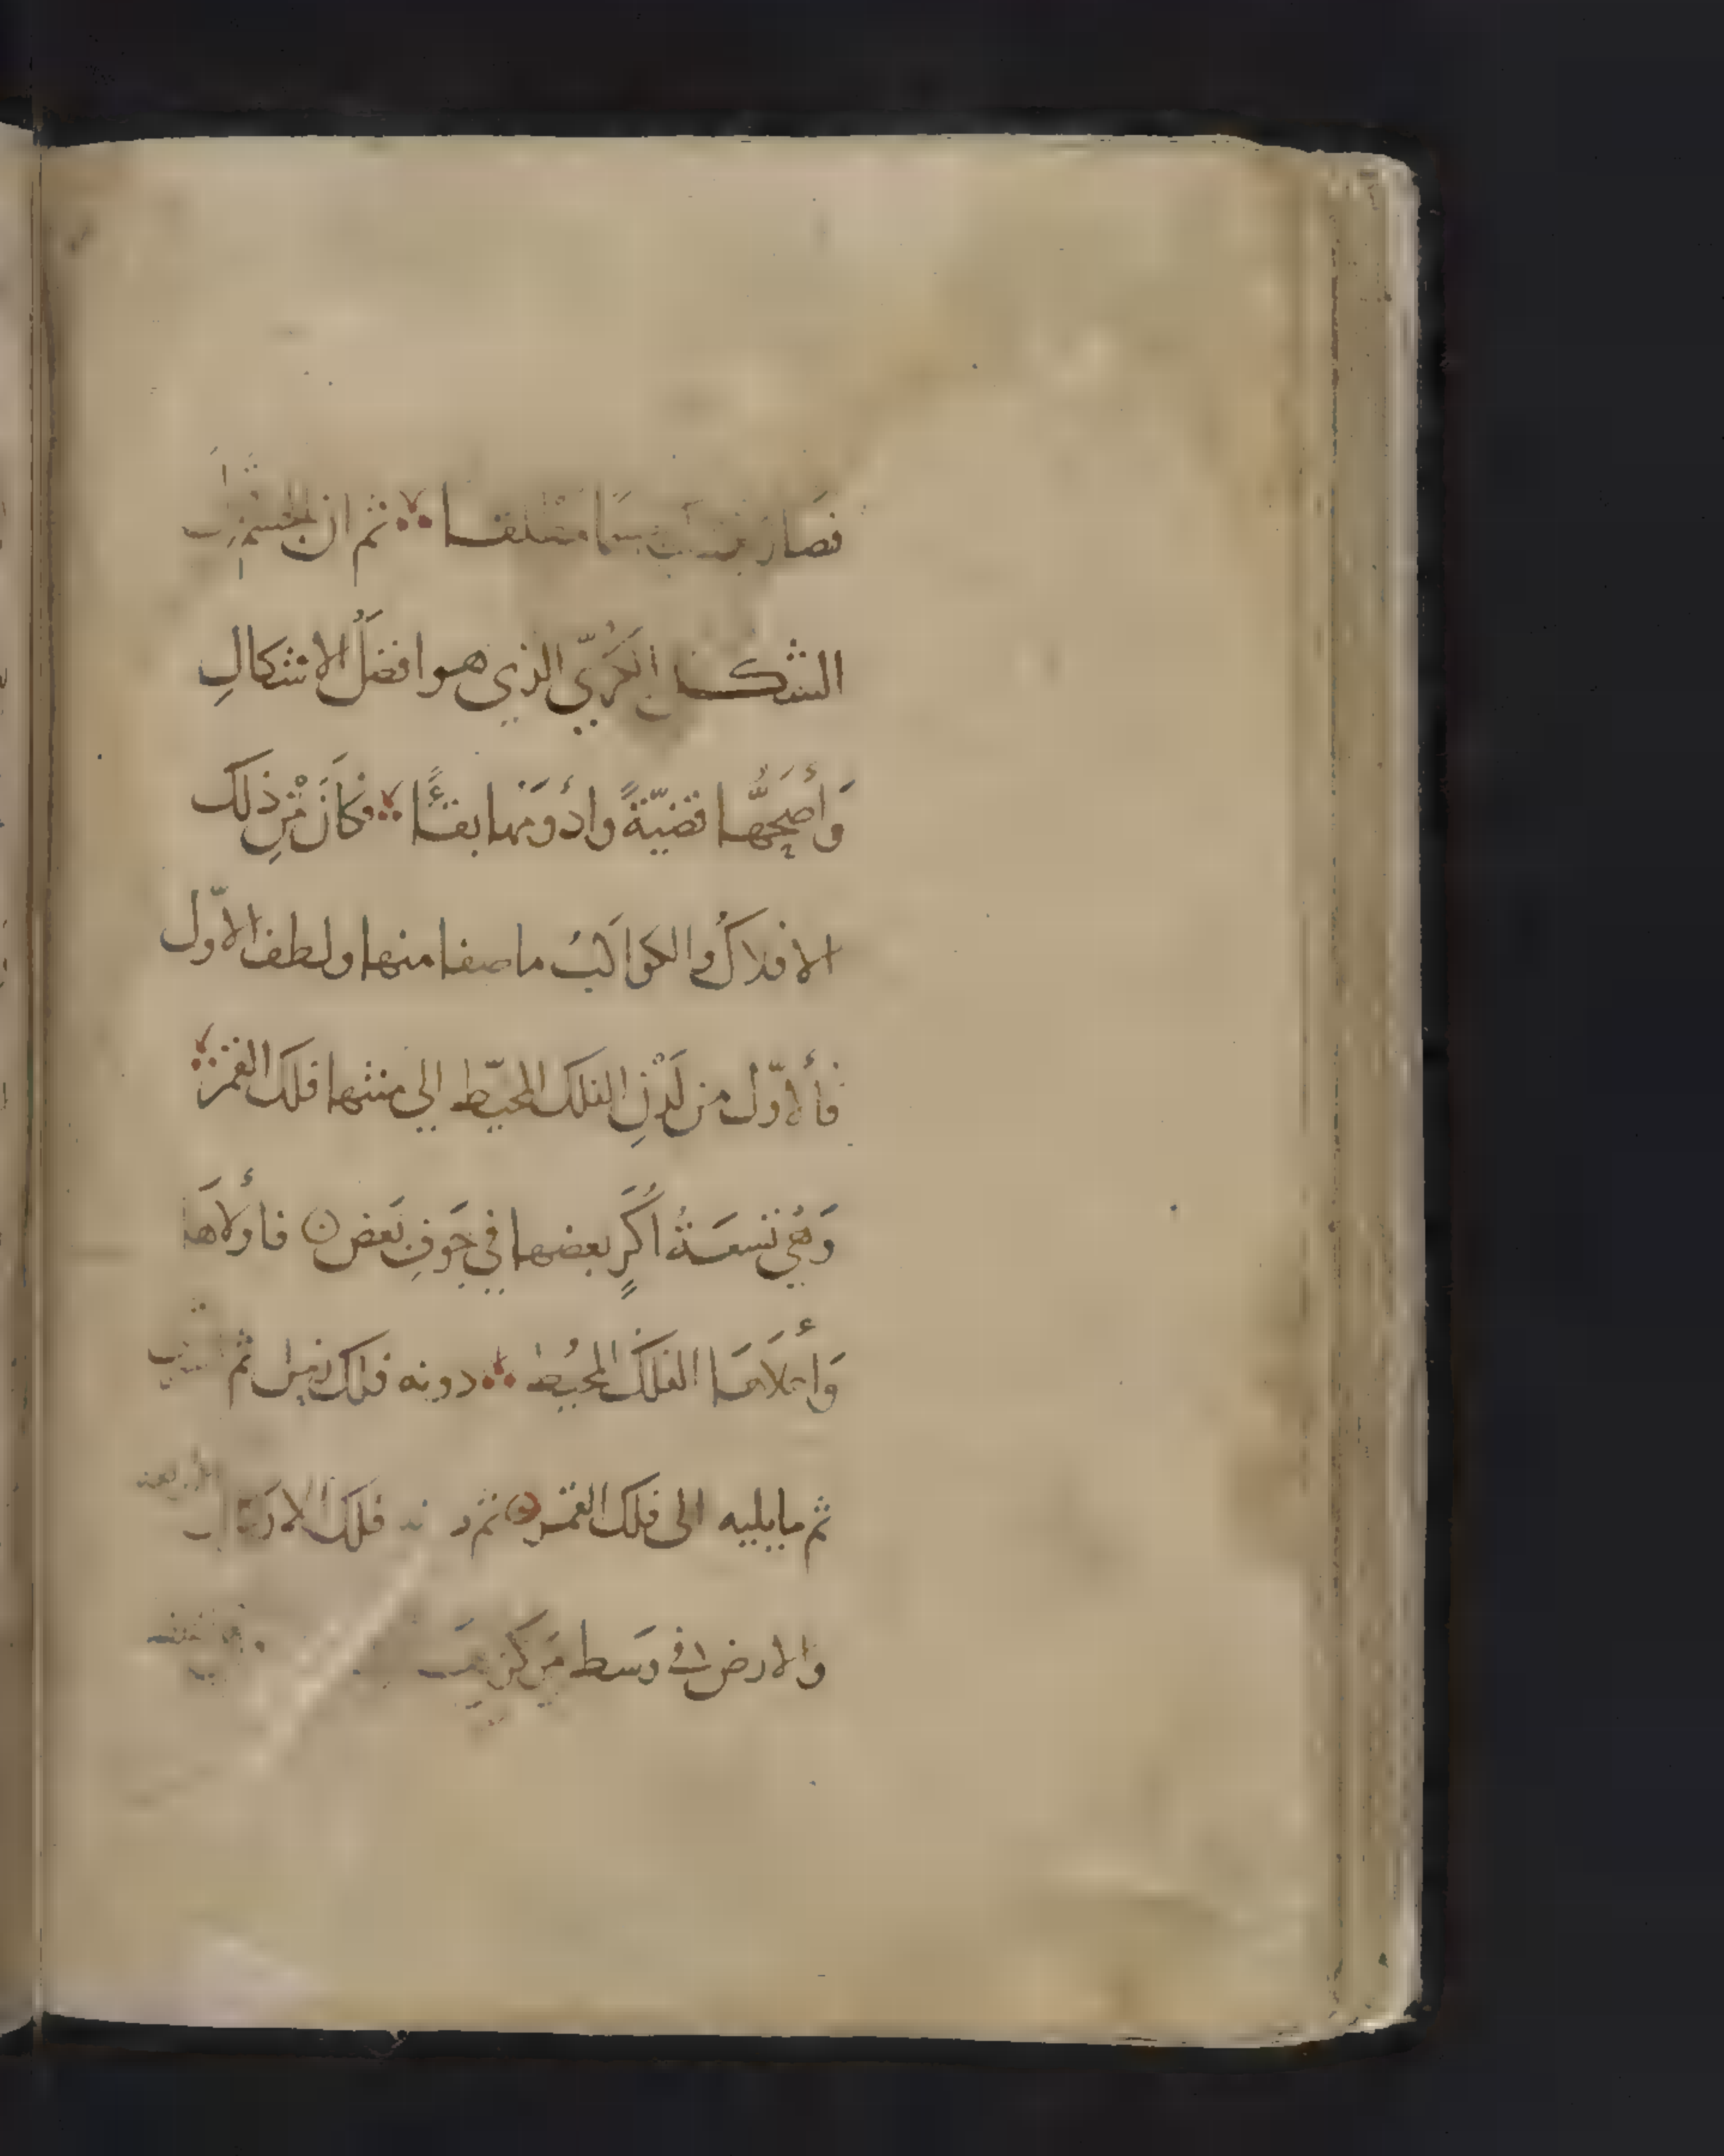 فصار جسما مطلقا ثم ان الجسم
الشكل الكُرِيّ الذي هو افضلُ الاشكالِ
وَأصَحُّها قضيّةً وادْوَمَها بقاءً فكانَ مِن ذلك
الافلاكُ والكواكبُ ما صفا منها ولطف الاوّل
فألاوّل من لَدُنِ الفلك المحيط الى منتها فلك القمر
وَهِي تسعَةُ اُكَرٍ بعضها في جَوفِ بَعضٍ فأولاها
وَأعلاهَا الفلَكُ المحيُط دونه فلك زحل ثم
ثم ما يليه الى فلك القمر ثم فلك الاركان الاربعة
والارض في وَسط مَركز